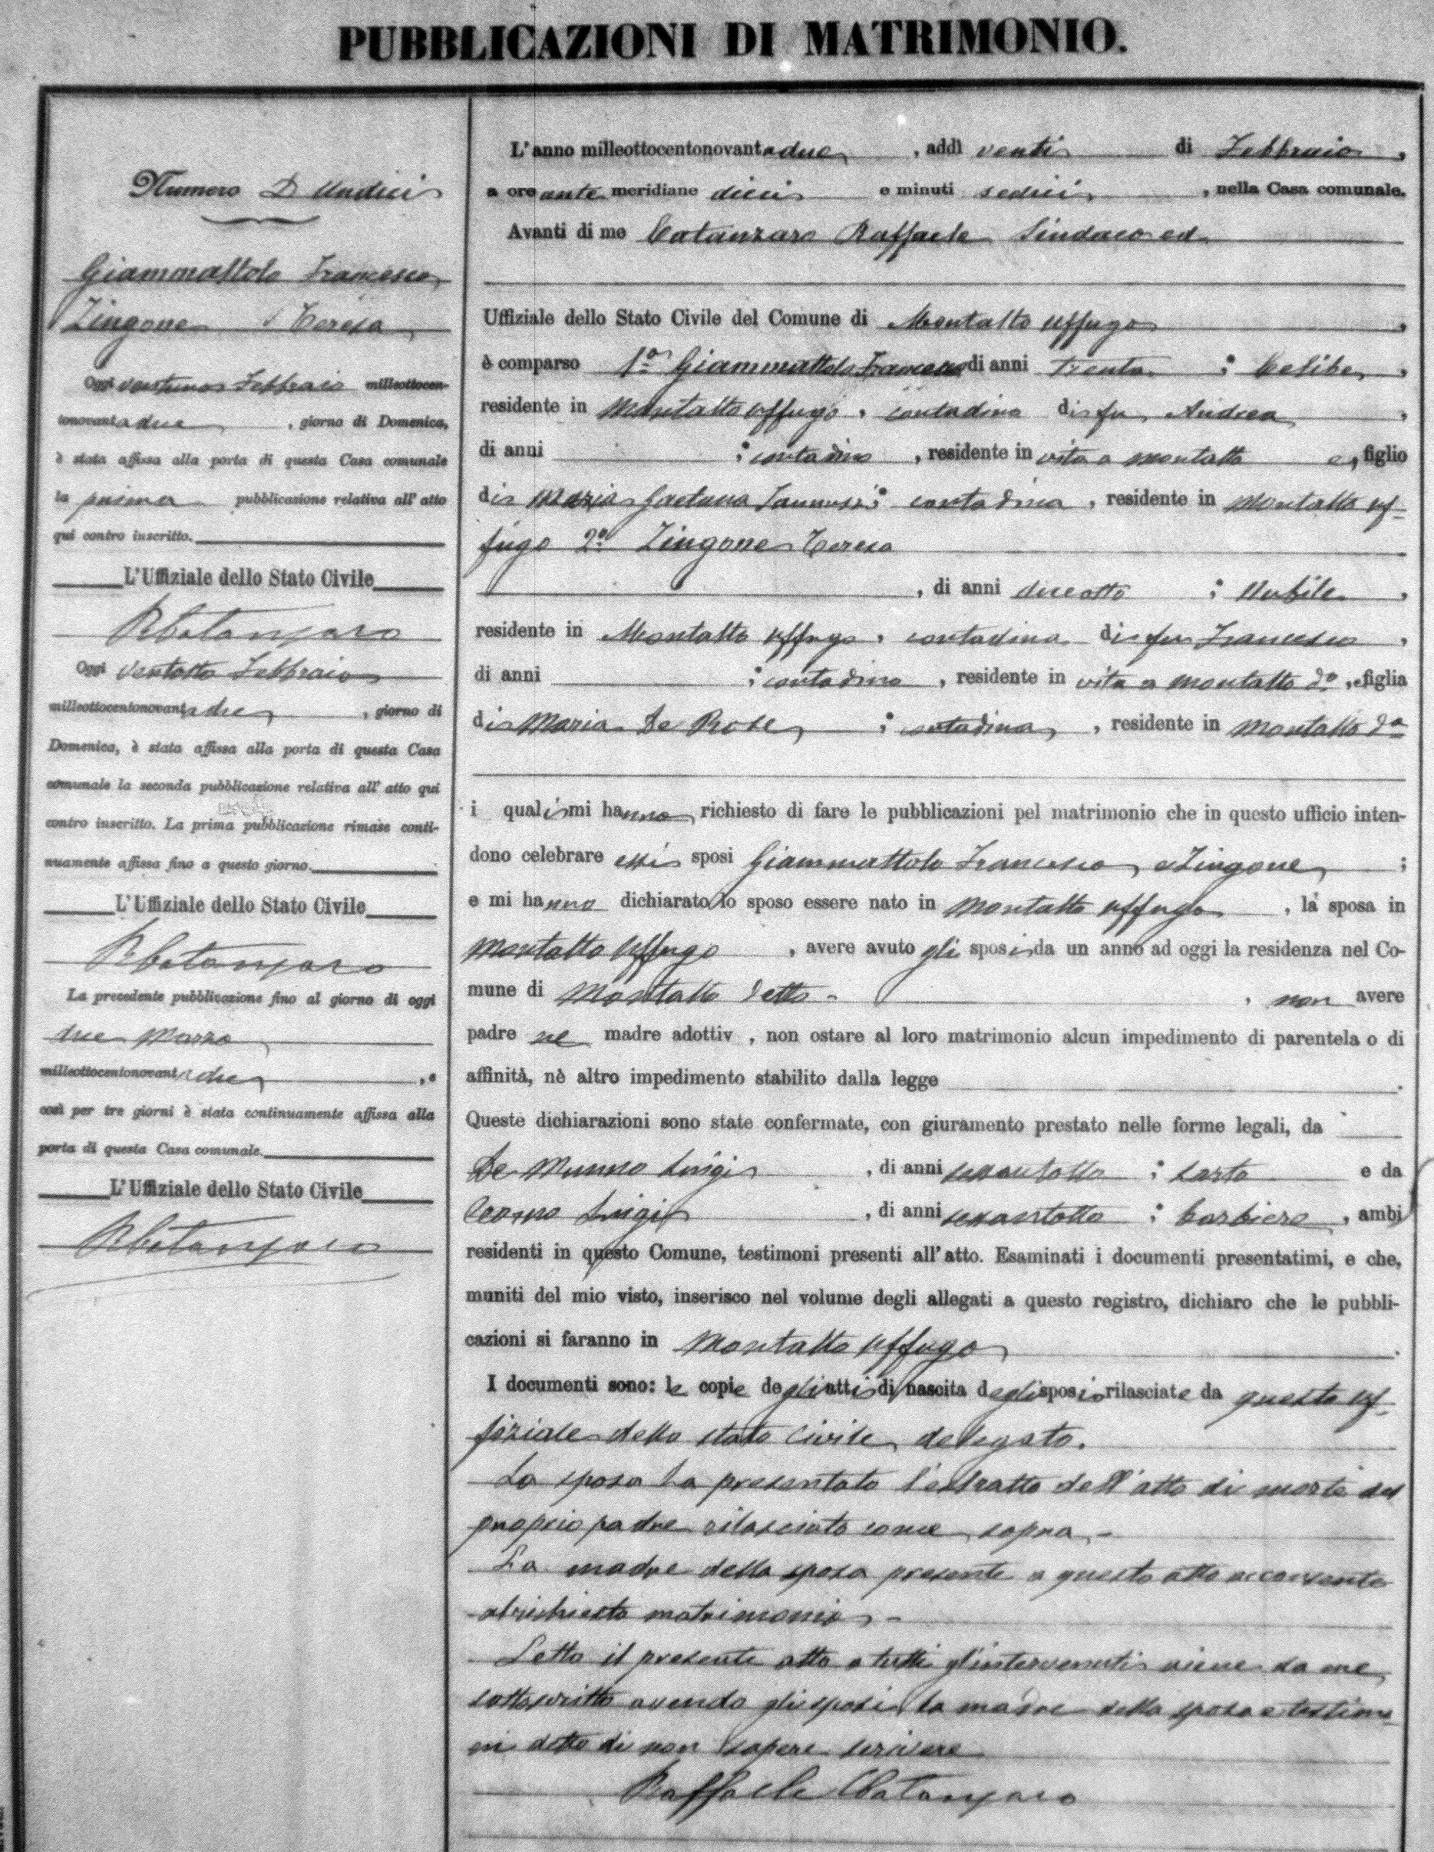 PUBBLICAZIONI DI MATRIMONIO.
Numero D Undici
Giammattolo Francesco
Zingone Teresa
Oggi ventuno Febbraio milleottocen-
tonovantadue, giorno di Domenica,
è stata affissa alla porta di questa Casa comunale
la prima pubblicazione relativa all' atto
qui contro inscritto.
L'Uffiziale dello Stato Civile
RCatanzaro
Oggi ventotto Febbraio
milleottocentonovantadue, giorno di
Domenica, è stata affissa alla porta di questa Casa
comunale la seconda pubblicazione relativa all' atto qui
contro inscritto. La prima pubblicazione rimase conti-
nuamente affissa fino a questo giorno.
L'Uffiziale dello Stato Civile
RCatanzaro
La precedente pubblicazione fino al giorno di oggi
due Marzo
milleottocentonovantadue, e
così per tre giorni è stata continuamente affissa alla
porta di questa Casa comunale.
L'Uffiziale dello Stato Civile
RCatanzaro
L'anno milleottocentonovantadue, addì venti di Febbraio,
a ore ante meridiane dieci e minuti sedici, nella Casa comunale.
Avanti di me Catanzaro Raffaele Sindaco ed
Uffiziale dello Stato Civile del Comune di Montalto Uffugo,
è comparso 1º Giammattolo Francesco di anni trenta ; Celibe,
residente in Montalto Uffugo, contadino di fu Andrea,
di anni ; contadino, residente in vita a Montalto e, figlio
di Maria Gaetana Iannuzzi ; contadina, residente in Montalto Uf-
fugo 2º Zingone Teresa
, di anni diciotto ; Nubile,
residente in Montalto Uffugo, contadina di fu Francesco,
di anni ; contadino, residente in vita a Montalto dº, e figlia
di Maria De Rose ; contadina, residente in Montalto dº
i quali mi hanno richiesto di fare le pubblicazioni pel matrimonio che in questo ufficio inten-
dono celebrare essi sposi Giammattolo Francesco, e Zingone ;
e mi hanno dichiarato lo sposo essere nato in Montalto Uffugo, la sposa in
Montalto Uffugo, avere avuto gli sposi da un anno ad oggi la residenza nel Co-
mune di Montalto detto - , non avere
padre ne madre adottiv , non ostare al loro matrimonio alcun impedimento di parentela o di
affinità, nè altro impedimento stabilito dalla legge .
Queste dichiarazioni sono state confermate, con giuramento prestato nelle forme legali, da
De Munno Luigi, di anni sessantotto ; sarto e da
Luigi, di anni sessantotto ; barbiere, ambi
residenti in questo Comune, testimoni presenti all' atto. Esaminati i documenti presentatimi, e che,
muniti del mio visto, inserisco nel volume degli allegati a questo registro, dichiaro che le pubbli-
cazioni si faranno in Montalto Uffugo.
I documenti sono: le copie degli atti di nascita degli sposi rilasciate da questo Uf-
fiziale dello stato Civile delegato.
La sposa ha presentato l'estratto dell'atto di morte del
proprio padre rilasciato come sopra -
La madre della sposa presente a questo atto acconsente
al richiesto matrimonio -
Letto il presente atto a tutti gl'intervenuti viene da me
sottoscritto avendo gli sposi, la madre della sposa e testimo-
ni detto di non sapere scrivere
Raffaele Catanzaro